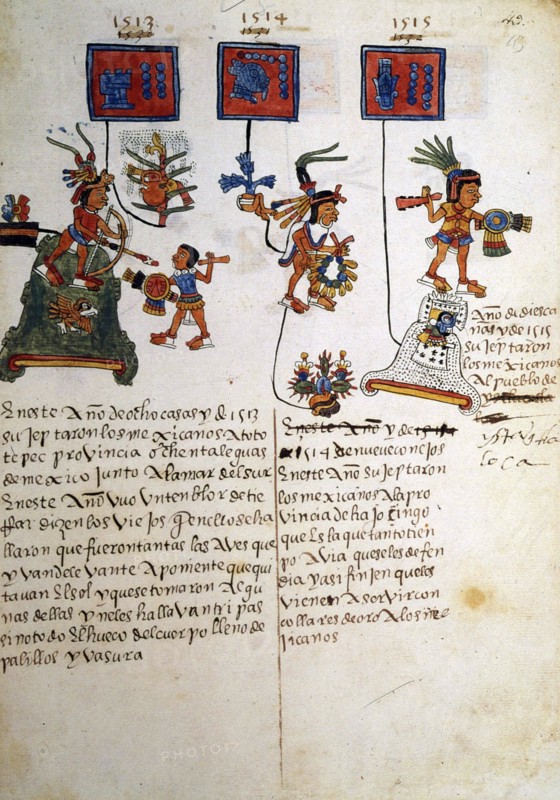 1513
1514
1515
Año de diez ca
ñas y de 1515
sujeptaron
los mexicanos
Al pueblo de
En este Año de ocho casas y de 1513
sujeptaron los mexicanos A toto
tepec provincia ochenta leguas
de mexico junto A la mar del sur
En este Año vuo vn temblor de tie
rra y dizen los viejos
llaron que fueron tantas las Aves que
yvan de levante A poniente que qui
tavan El sol y que se tomaron Algu
nas dellas y no les hallavan tripas
sino todo El hueco del cuerpo lleno de
palillos y vasura
En este Año y de
1514 de nueve conejos
En este Año sujeptaron
los mexicanos Ala pro
vincia de
que Es la que tanto tien
po Avia que se les defen
dia y asi finjen que les
vienen A servir con
collares de oro A los me
xicanos
PHOTO12